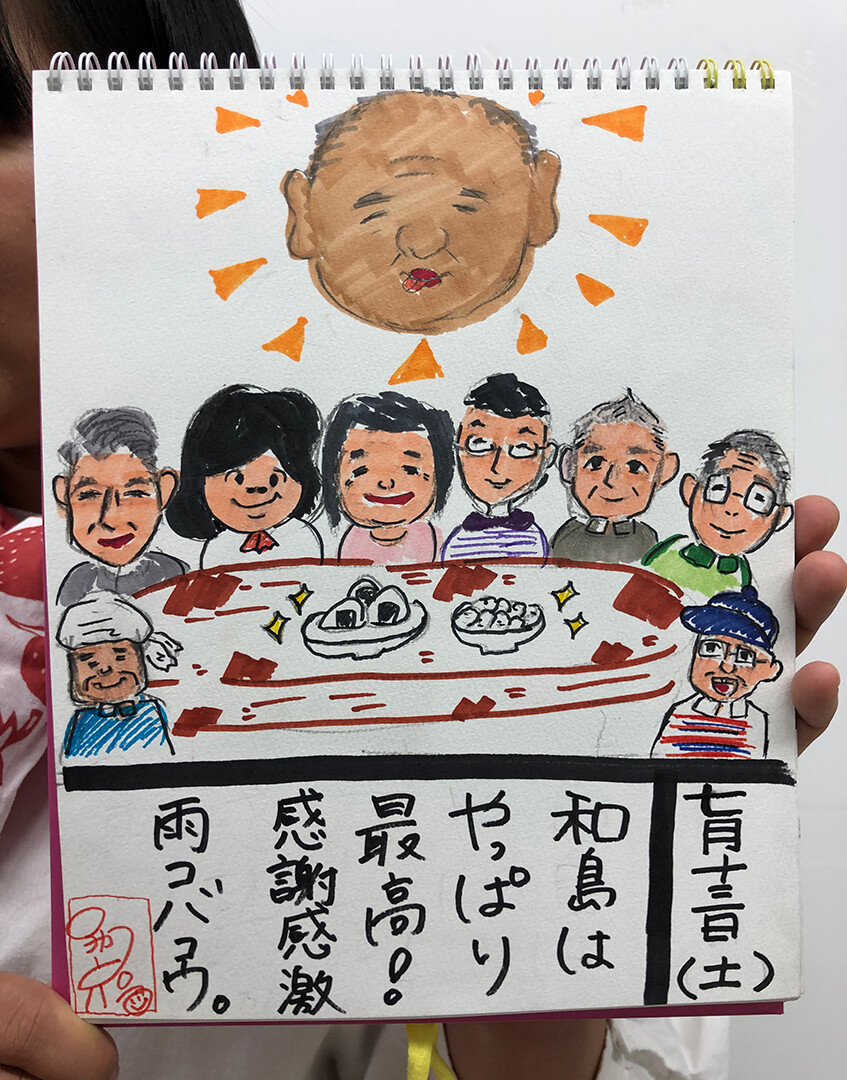 七月十三日(土)
和島は
やっぱり
最高!
感謝感激
雨コバヤウ。